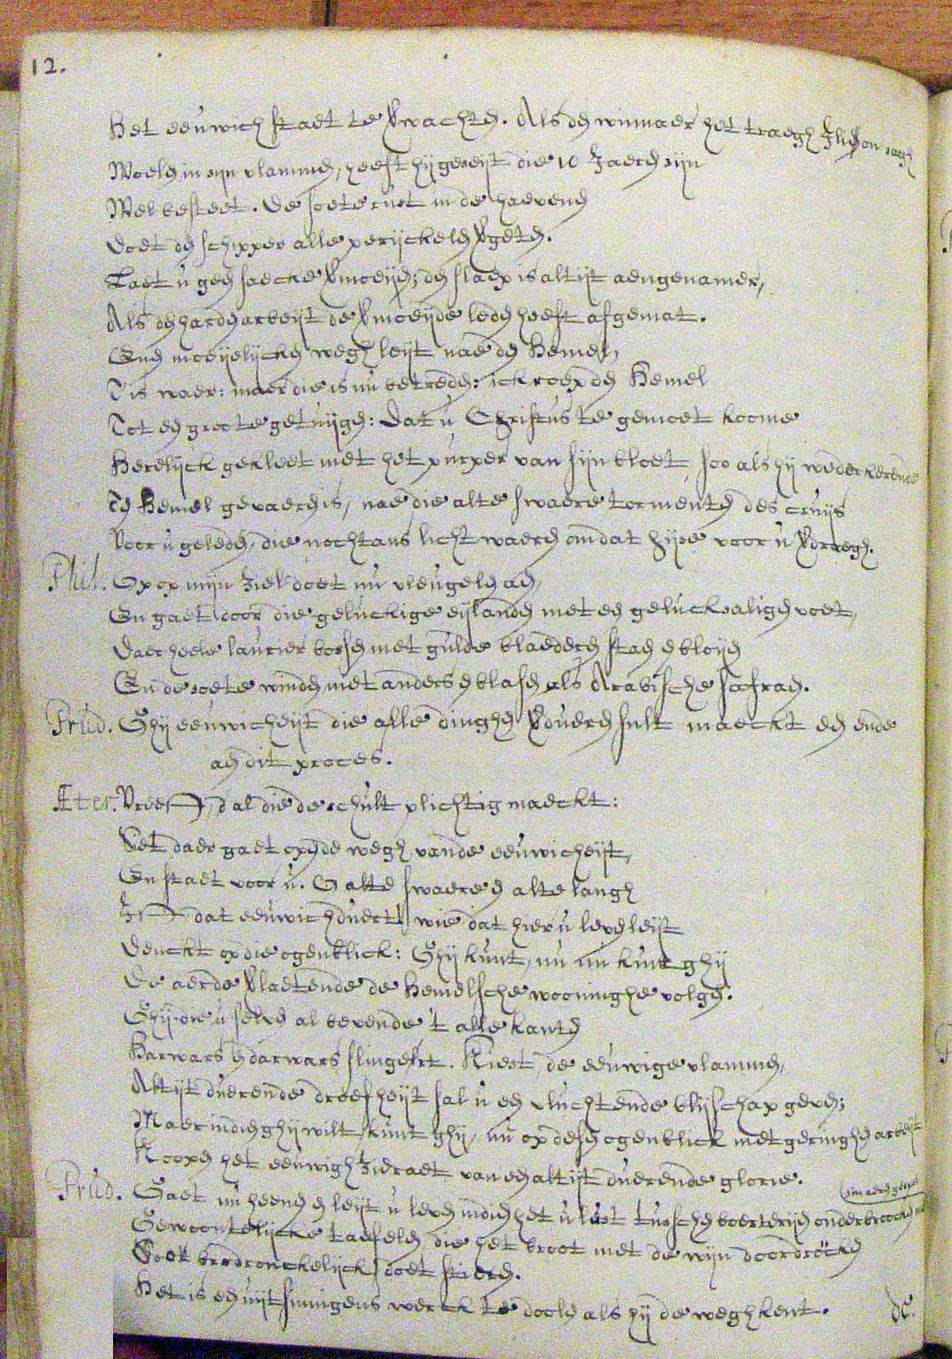 12.
Het eeuwich staet te verwachten. Als den winnaer het traegh
Woelden in zijn vlammen, heeft hij gereijst die 10 Jaeren zijn
Wel besteet. De soete rust in de haevens
Doet den schipper alle perijckelen vergeten.
Laet u geen saecke vermoeijen; den slaep is altijt aengenamer,
Als den harden arbeijt de vermoeijde leden heeft afgemat.
Eenen moeijelijcken wegh leijt nae den Hemel,
Tis waer: maer die is nu betreden: ick roep den Hemel
Tot een groote getuijgen: Dat u Christus te gemoet koome
Heerlijck gekleet met het purper van sijn bloet, soo als hij wederkerende
Ten Hemel gevaeren is, nae die alte swaere tormenten des cruijs
Voor u geleden, die nochtans licht waeren omdat hijse voor u verdraegh.
Phil. Op op mijn ziel doet nu vleugelen aen,
En gaet door die geluckige eijlanden met een geluckaligen voet,
Daer heele laurier bossen met gulde blaederen staen en bloijen
En de soete winden niet anders en blasen als Arabische safraen.
Prud. Ghij eeuwicheijt die alle dinghen verdueren sult maeckt een ende
aen dit proces.
Æter. Vreest, dal die de schult plichtig maeckt:
Let daer gaet open de wegh vande eeuwicheijt,
En staet voor u. O alte swaere en alte langh
Ist, dat eeuwich duert wie dat hier u leven leijt
Denckt op die ogenblick: Ghij kunt, nu nu kunt ghij
De aerde verlaetende de Hemelsche wooninghe volgen.
Ghij u selven al bevende t alle kanten
Harwars en darwars slingert. Kiest, de eeuwige vlammen,
Altijt duerende droefheijt sal u een vluchtende blijschap geven;
Maer indien ghij wilt, kunt ghij, nu op desen ogenblick met geringhen arbeijt
Koopen het eeuwigh Zieraet van een altijt duerende glorie.
Prud. Gaet nu heenen en leijt u leven indien het u lust tusschen boerterijen onderbroocken
Gewoontelijcke taefelen die het broot met de wijn doordröcken
Soet brodronckelijck doet stieren.
Het is een uijtsinnigens werck te doolen als hij de wegh kent.
de.